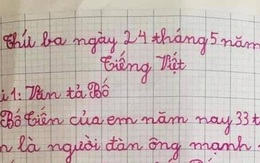 Thứ ba ngày 24 tháng 5 năm
Tiếng Việt
i 1: Văn tả Bố
Bố Tiến của em năm nay 33 t
n là người đàn ông mạnh